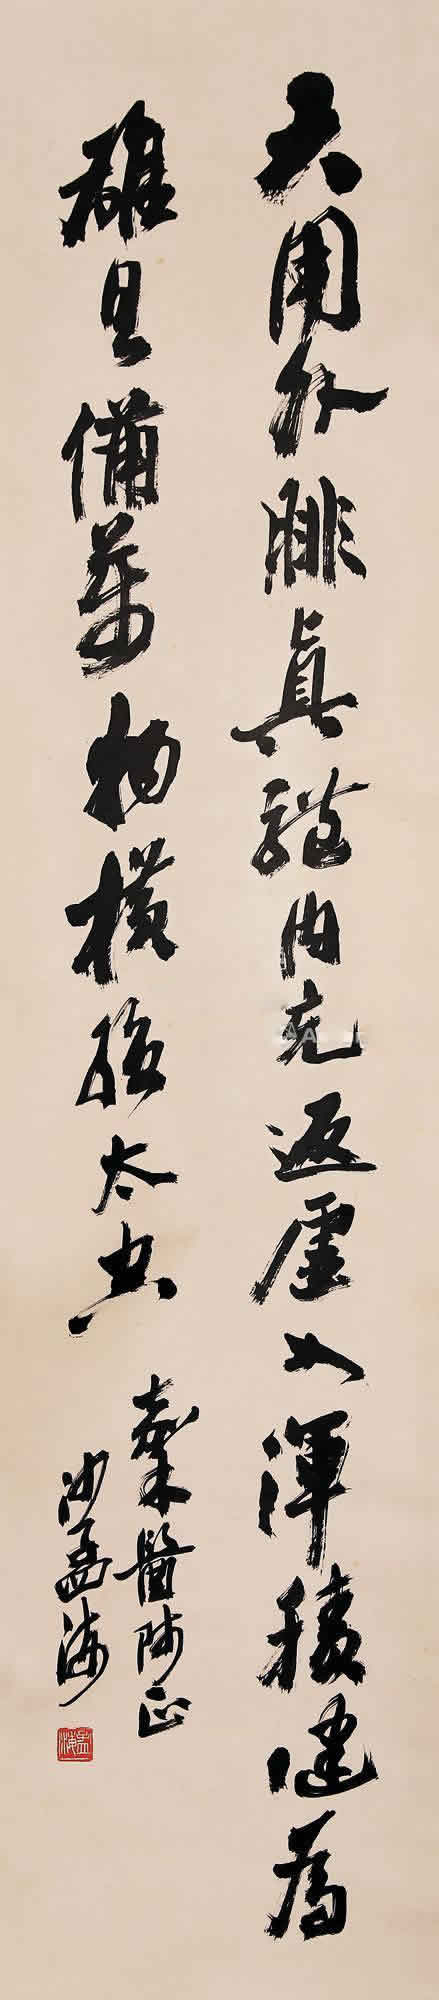 大用外腓真體内充返虛入渾積健為
雄具備萬物橫絕太空
醫師正
沙孟海
孟海